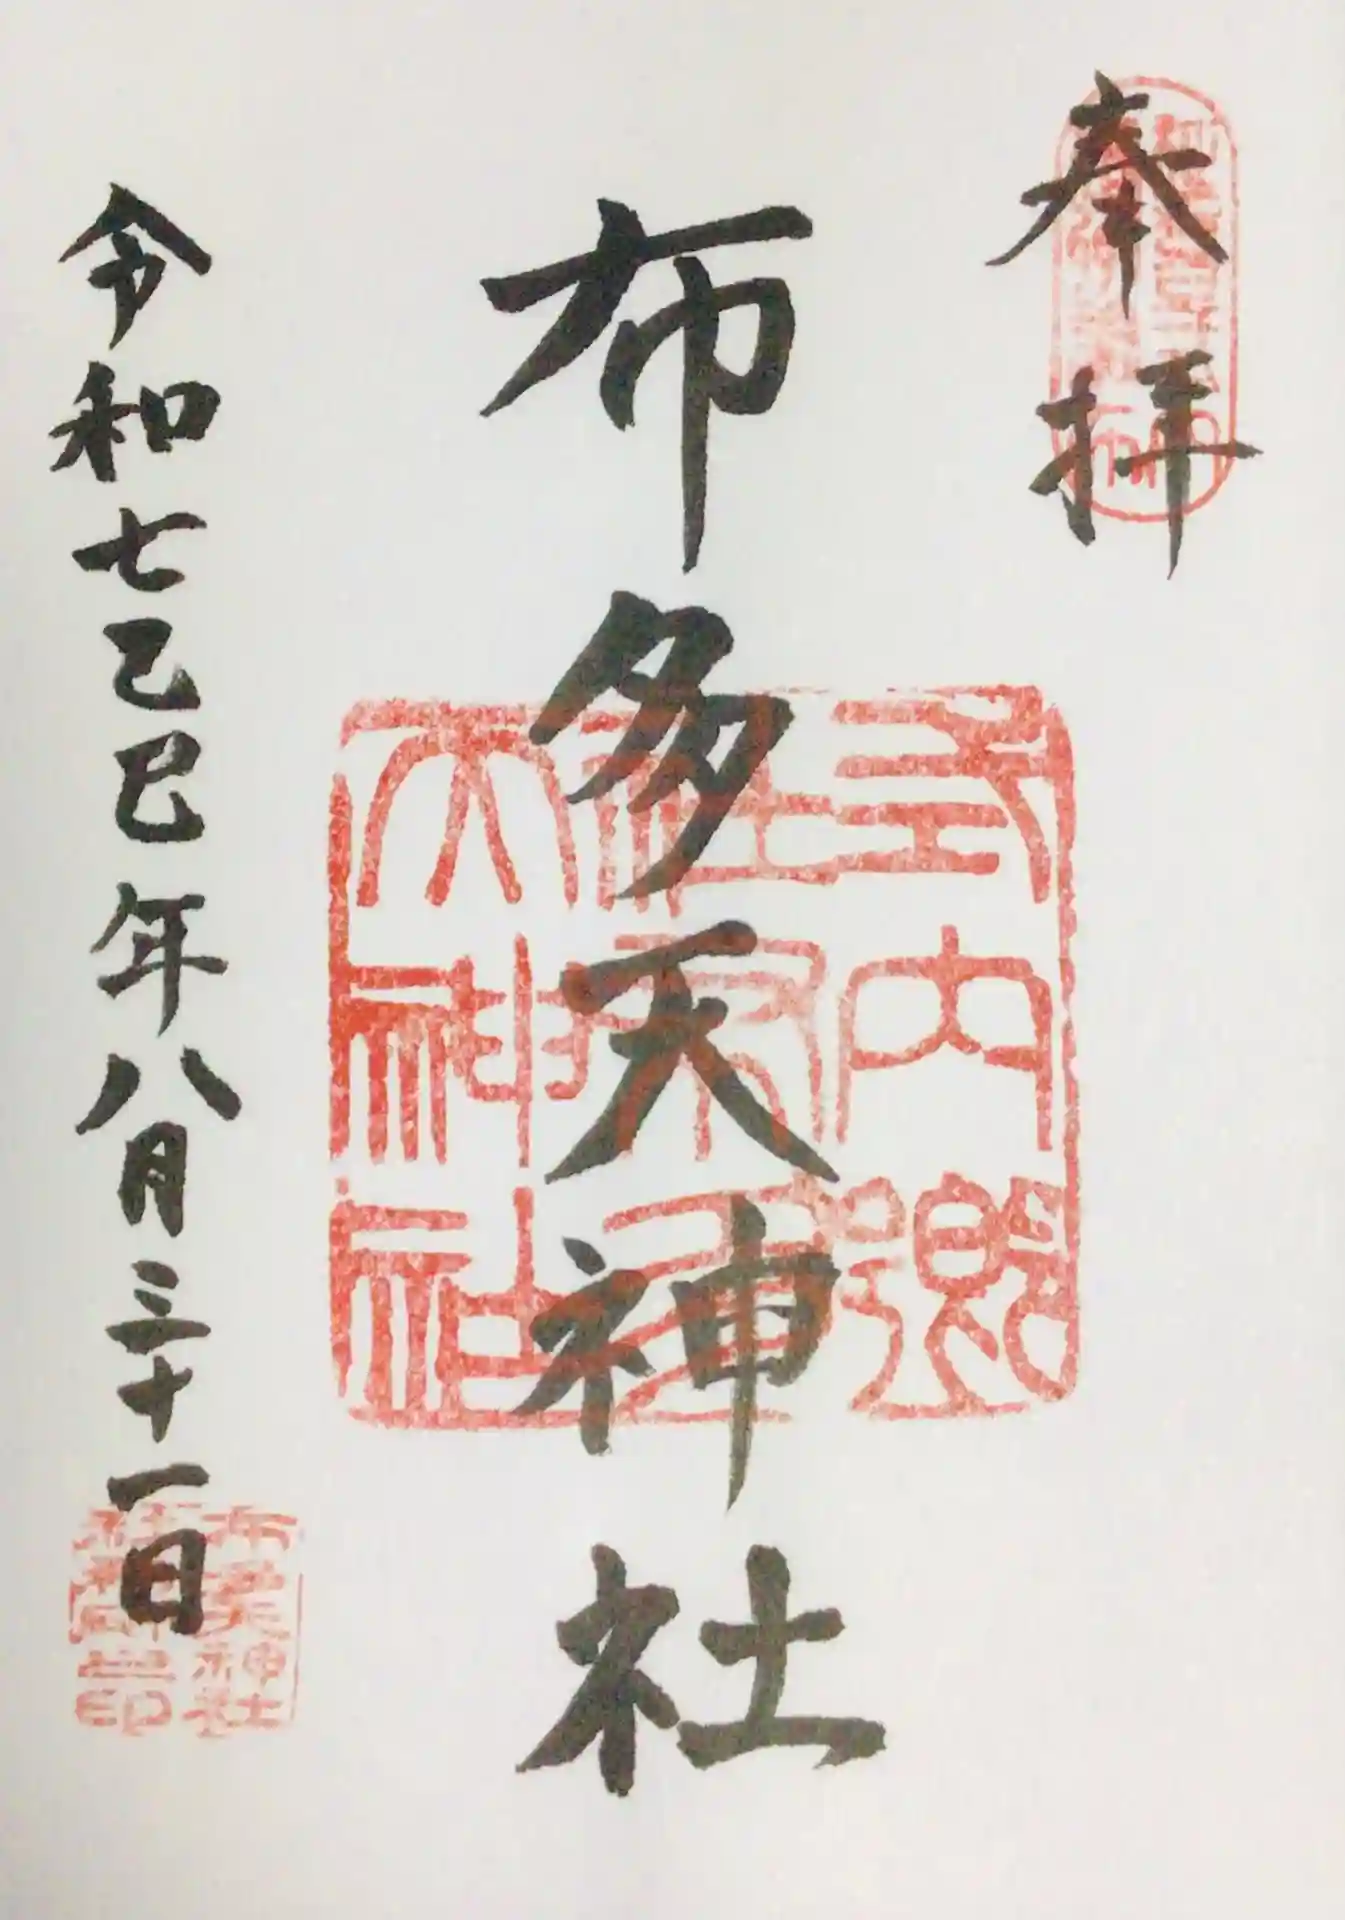 奉拝
布多天神社
式内郷
社布多
天神社
令和七乙巳年八月三十一日
布多天神社